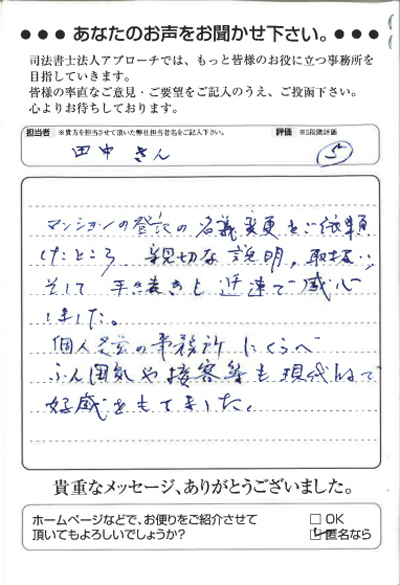 ●●● あなたのお声をお聞かせ下さい。●●●
司法書士法人アプローチでは、もっと皆様のお役に立つ事務所を
目指していきます。
皆様の率直なご意見・ご要望をご記入のうえ、ご投函下さい。
心よりお待ちしております。
担当者 ※貴方を担当させて頂いた弊社担当者名をご記入下さい。 評価 ※5段階評価
田中さん 5
マンションの登記の名義変更をご依頼
したところ 親切な説明、取扱い、
そして 手続きも 迅速で 感心
しました。
個人名立の事務所 にくらべ
ふん囲気や接客等も現代的で
好感をもてました。
貴重なメッセージ、ありがとうございました。
ホームページなどで、お便りをご紹介させて
頂いてもよろしいでしょうか?
□ OK
□ 匿名なら